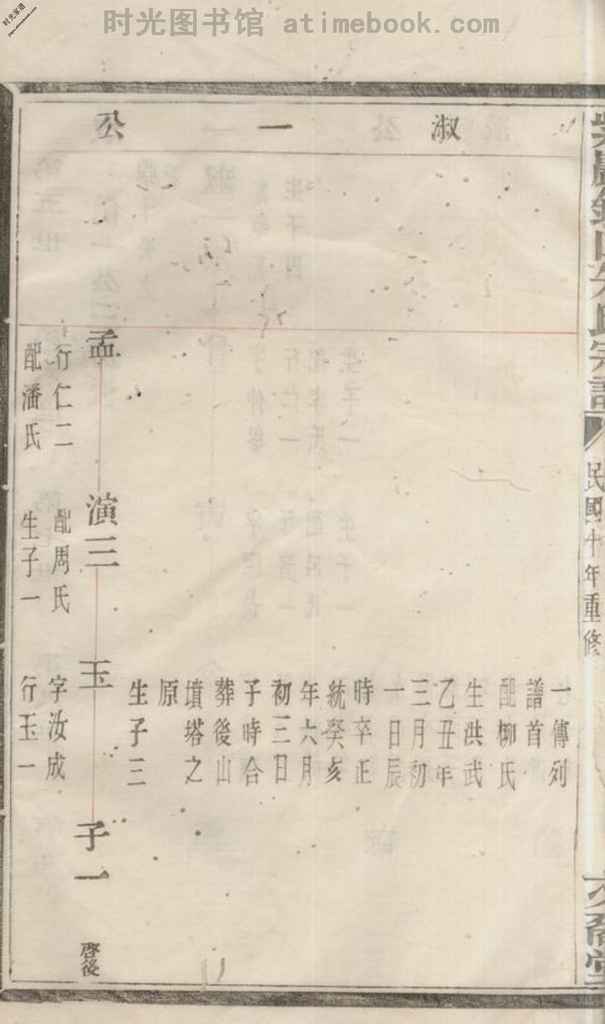 时光图书馆 atimebook.com
时光家谱
民國十年重修
淑一公
一傳列
譜首
配柳氏
生洪武
乙丑年
三月初
一日辰
時卒正
統癸亥
年六月
初三日
子時合
葬後山
墳塔之
原
生子三
孟
行仁二
配潘氏
演三
配周氏
生子一
玉
字汝成
行玉一
子一
啓後